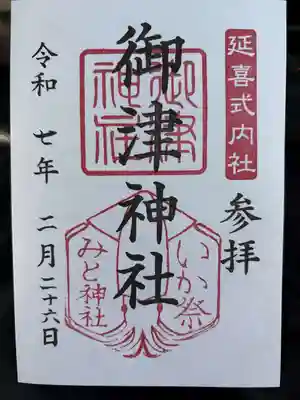 延喜式内社
参拝
御津神社
御津神社
いか祭
みと神社
令和七年二月二十六日